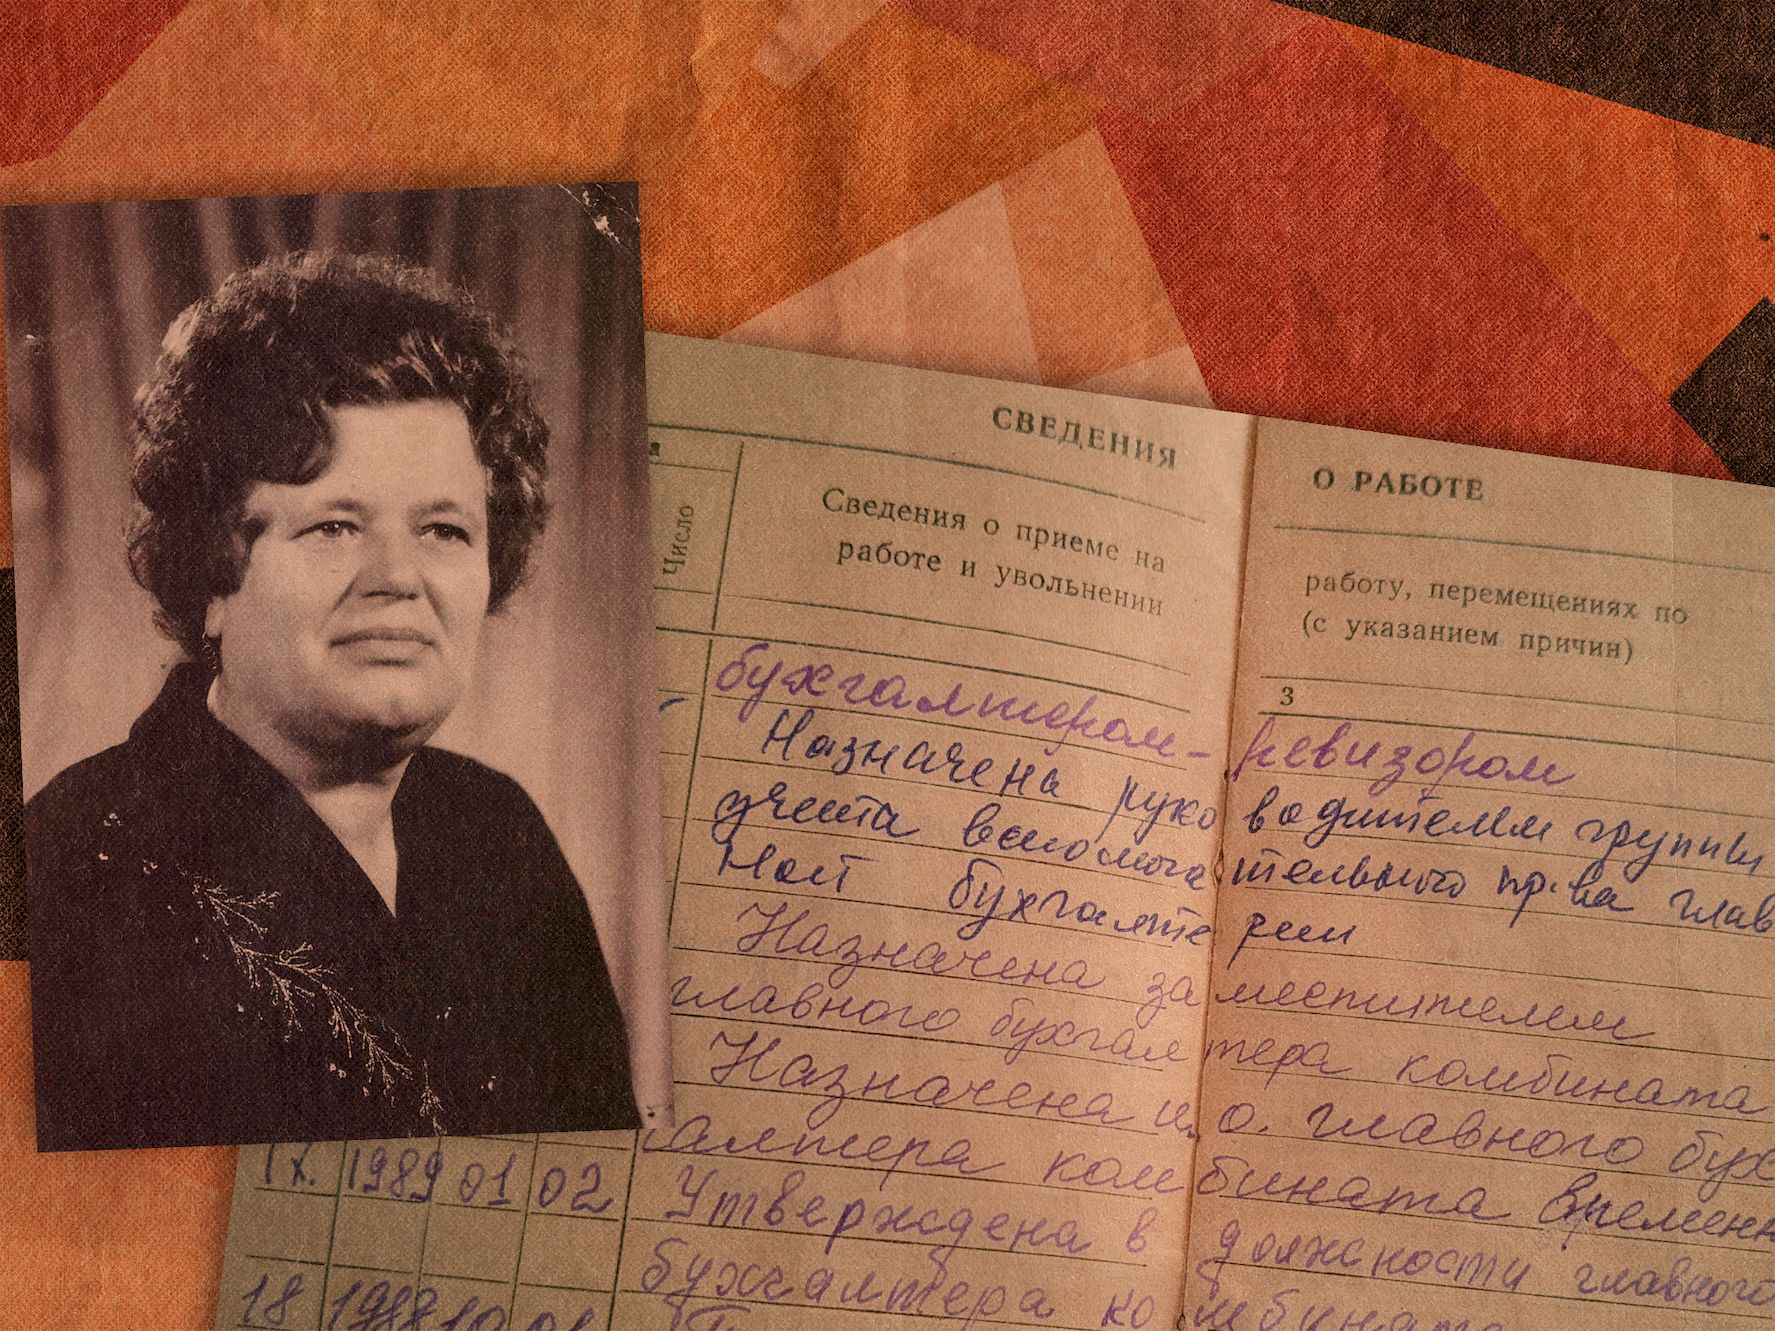 СВЕДЕНИЯ О РАБОТЕ
Число
Сведения о приеме на работу, перемещениях по
работе и увольнении (с указанием причин)
3
бухгалтером-ревизором
Назначена руководителем группы
учета вспомогательного пр-ва глав
ной бухгалтерии
Назначена заместителем
главного бухгалтера комбината
Назначена и.о. главного бух
алтера комбината временн
IX. 1989 01 02 Утверждена в должности главного
бухгалтера комбината
18